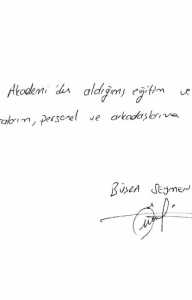 Akademi'den aldığım eğitim ve
personel ve arkadaşlarıma
BÜŞRA SEYMEN